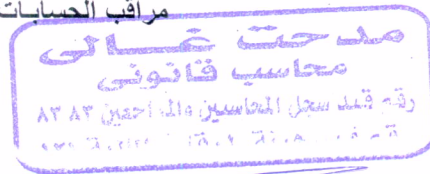 مراقب الحسابات
مدحت غالى
محاسب قانونى
رقم قيد سجل المحاسبين والمراجعين ٨٣٨٣